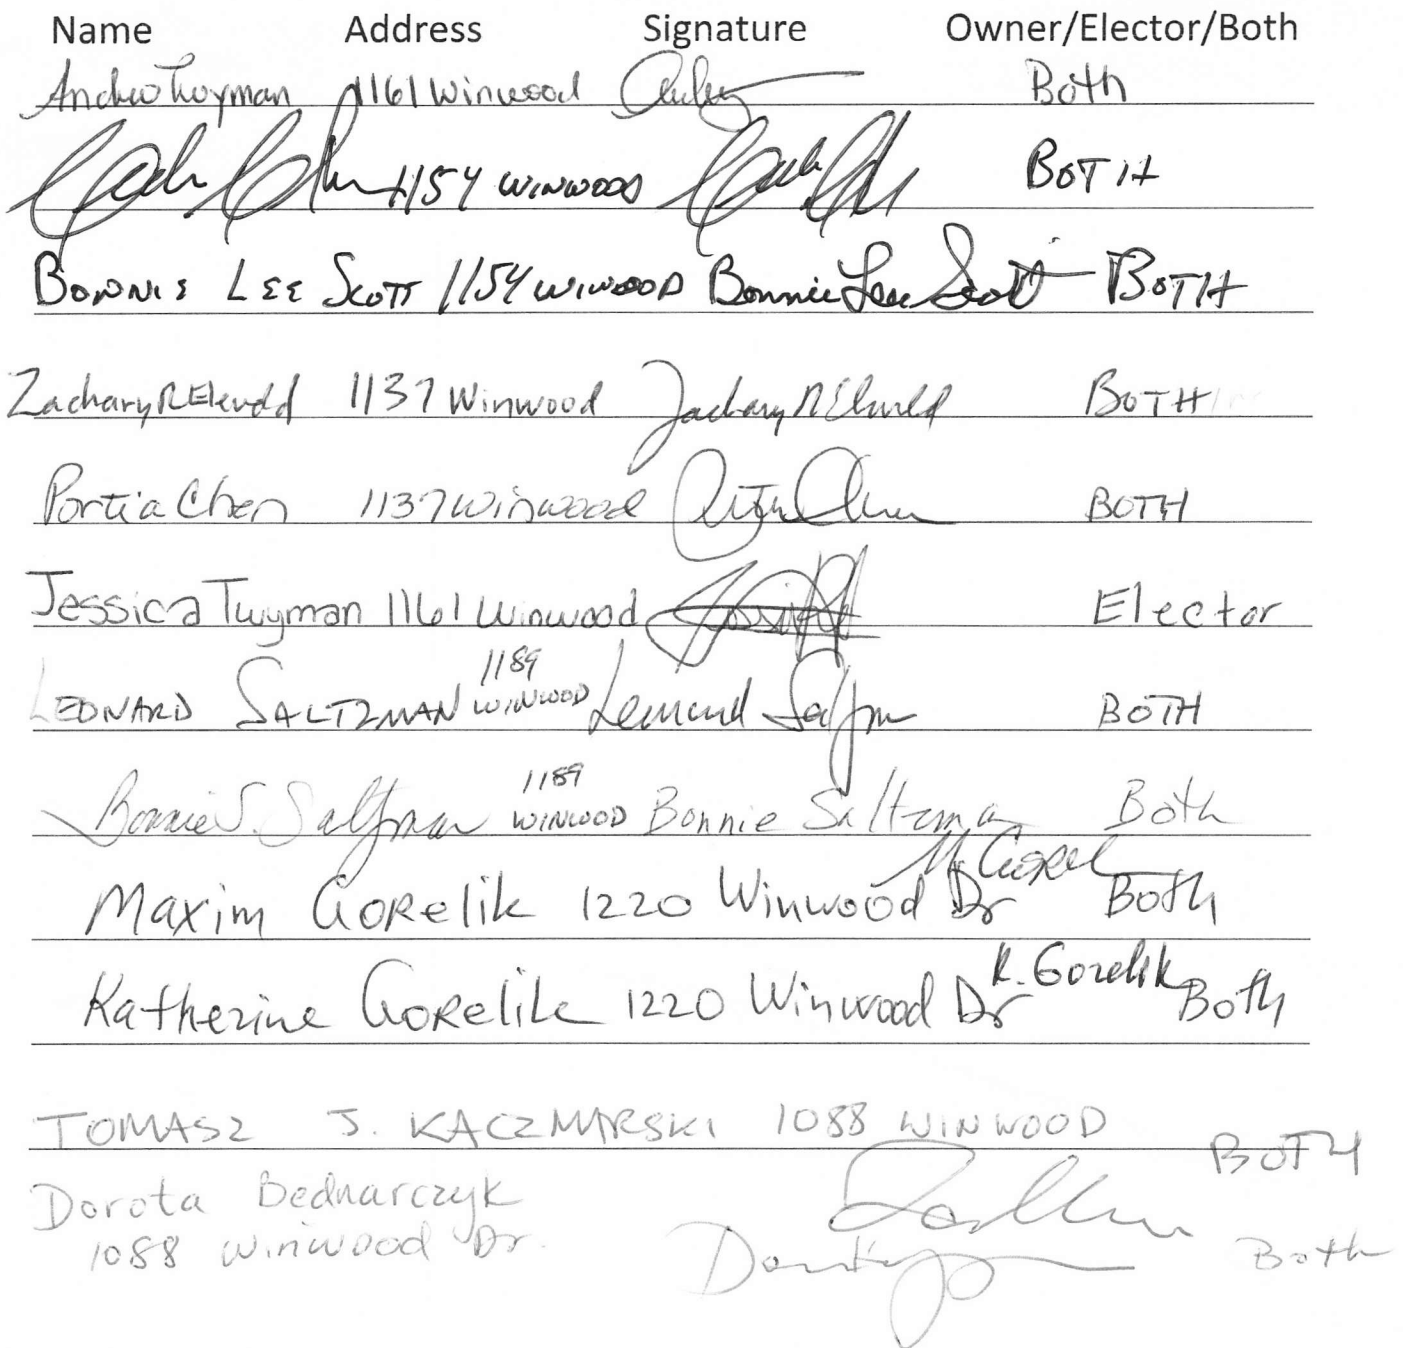 Name Address Signature Owner/Elector/Both
Andrew Twyman 1161 Winwood Both
1154 WINWOOD BOTH
BONNIE LEE SCOTT 1154 WINWOOD Bonnie Lee Scott BOTH
Zachary R 1137 Winwood Zachary R BOTH
Portia Chen 1137 Winwood BOTH
Jessica Twyman 1161 Winwood Elector
LEONARD SALTZMAN 1189 WINWOOD Leonard BOTH
Bonnie S. Saltzman 1189 WINWOOD Bonnie Saltzman Both
Maxim GORelik 1220 Winwood Dr M. Gorel Both
Katherine GORelik 1220 Winwood Dr K. Gorelik Both
TOMASZ J. KACZMARSKI 1088 WINWOOD BOTH
Dorota Bednarczyk
1088 Winwood Dr. Both